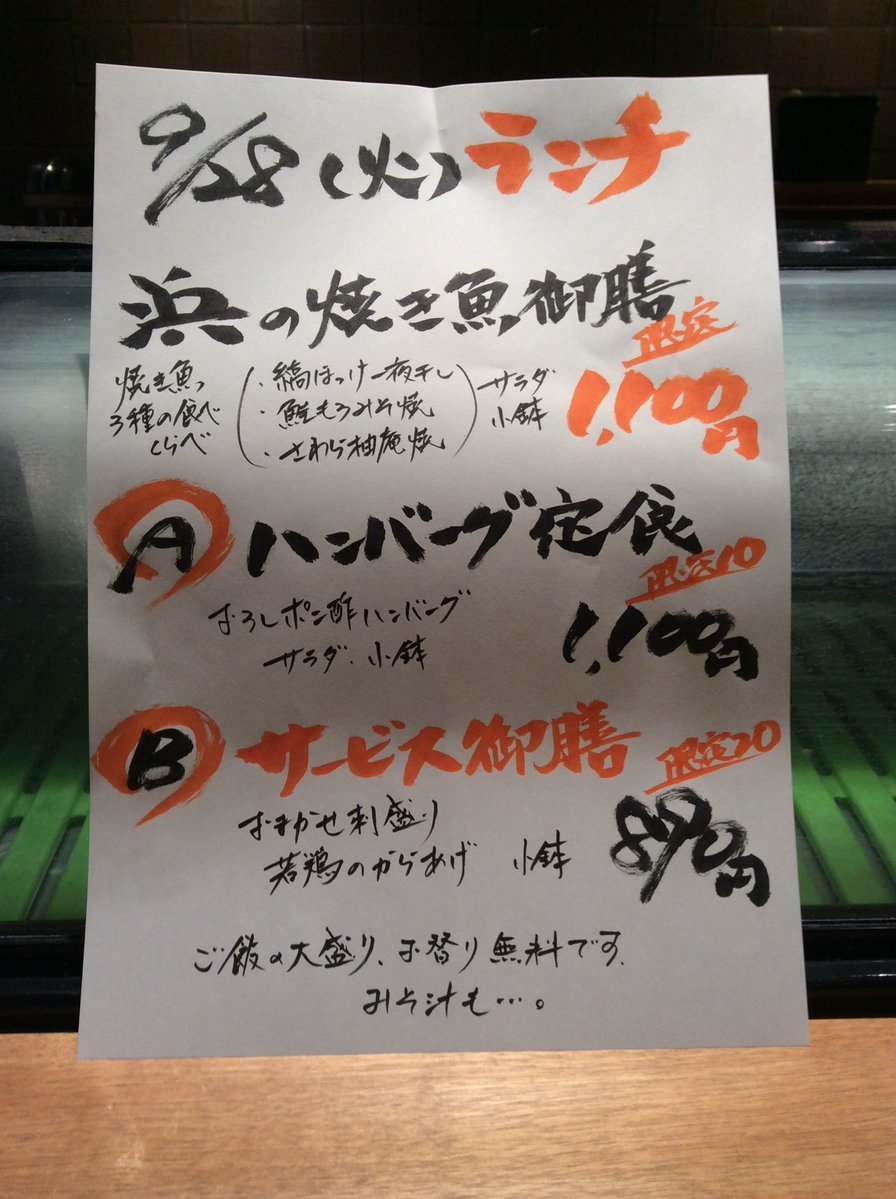 9/28(火)ランチ
浜の焼き魚御膳
限定
焼き魚
3種の食べ
くらべ
・縞ほっけ一夜干し
・鮭もろみそ焼
・さわら柚庵焼
サラダ
小鉢
1,100円
A ハンバーグ定食
限定10
おろしポン酢ハンバーグ
サラダ.小鉢
1,100円
B サービス御膳
限定20
おまかせ刺盛り
若鶏のからあげ 小鉢
890円
ご飯の大盛り、お替り無料です.
みそ汁も…。